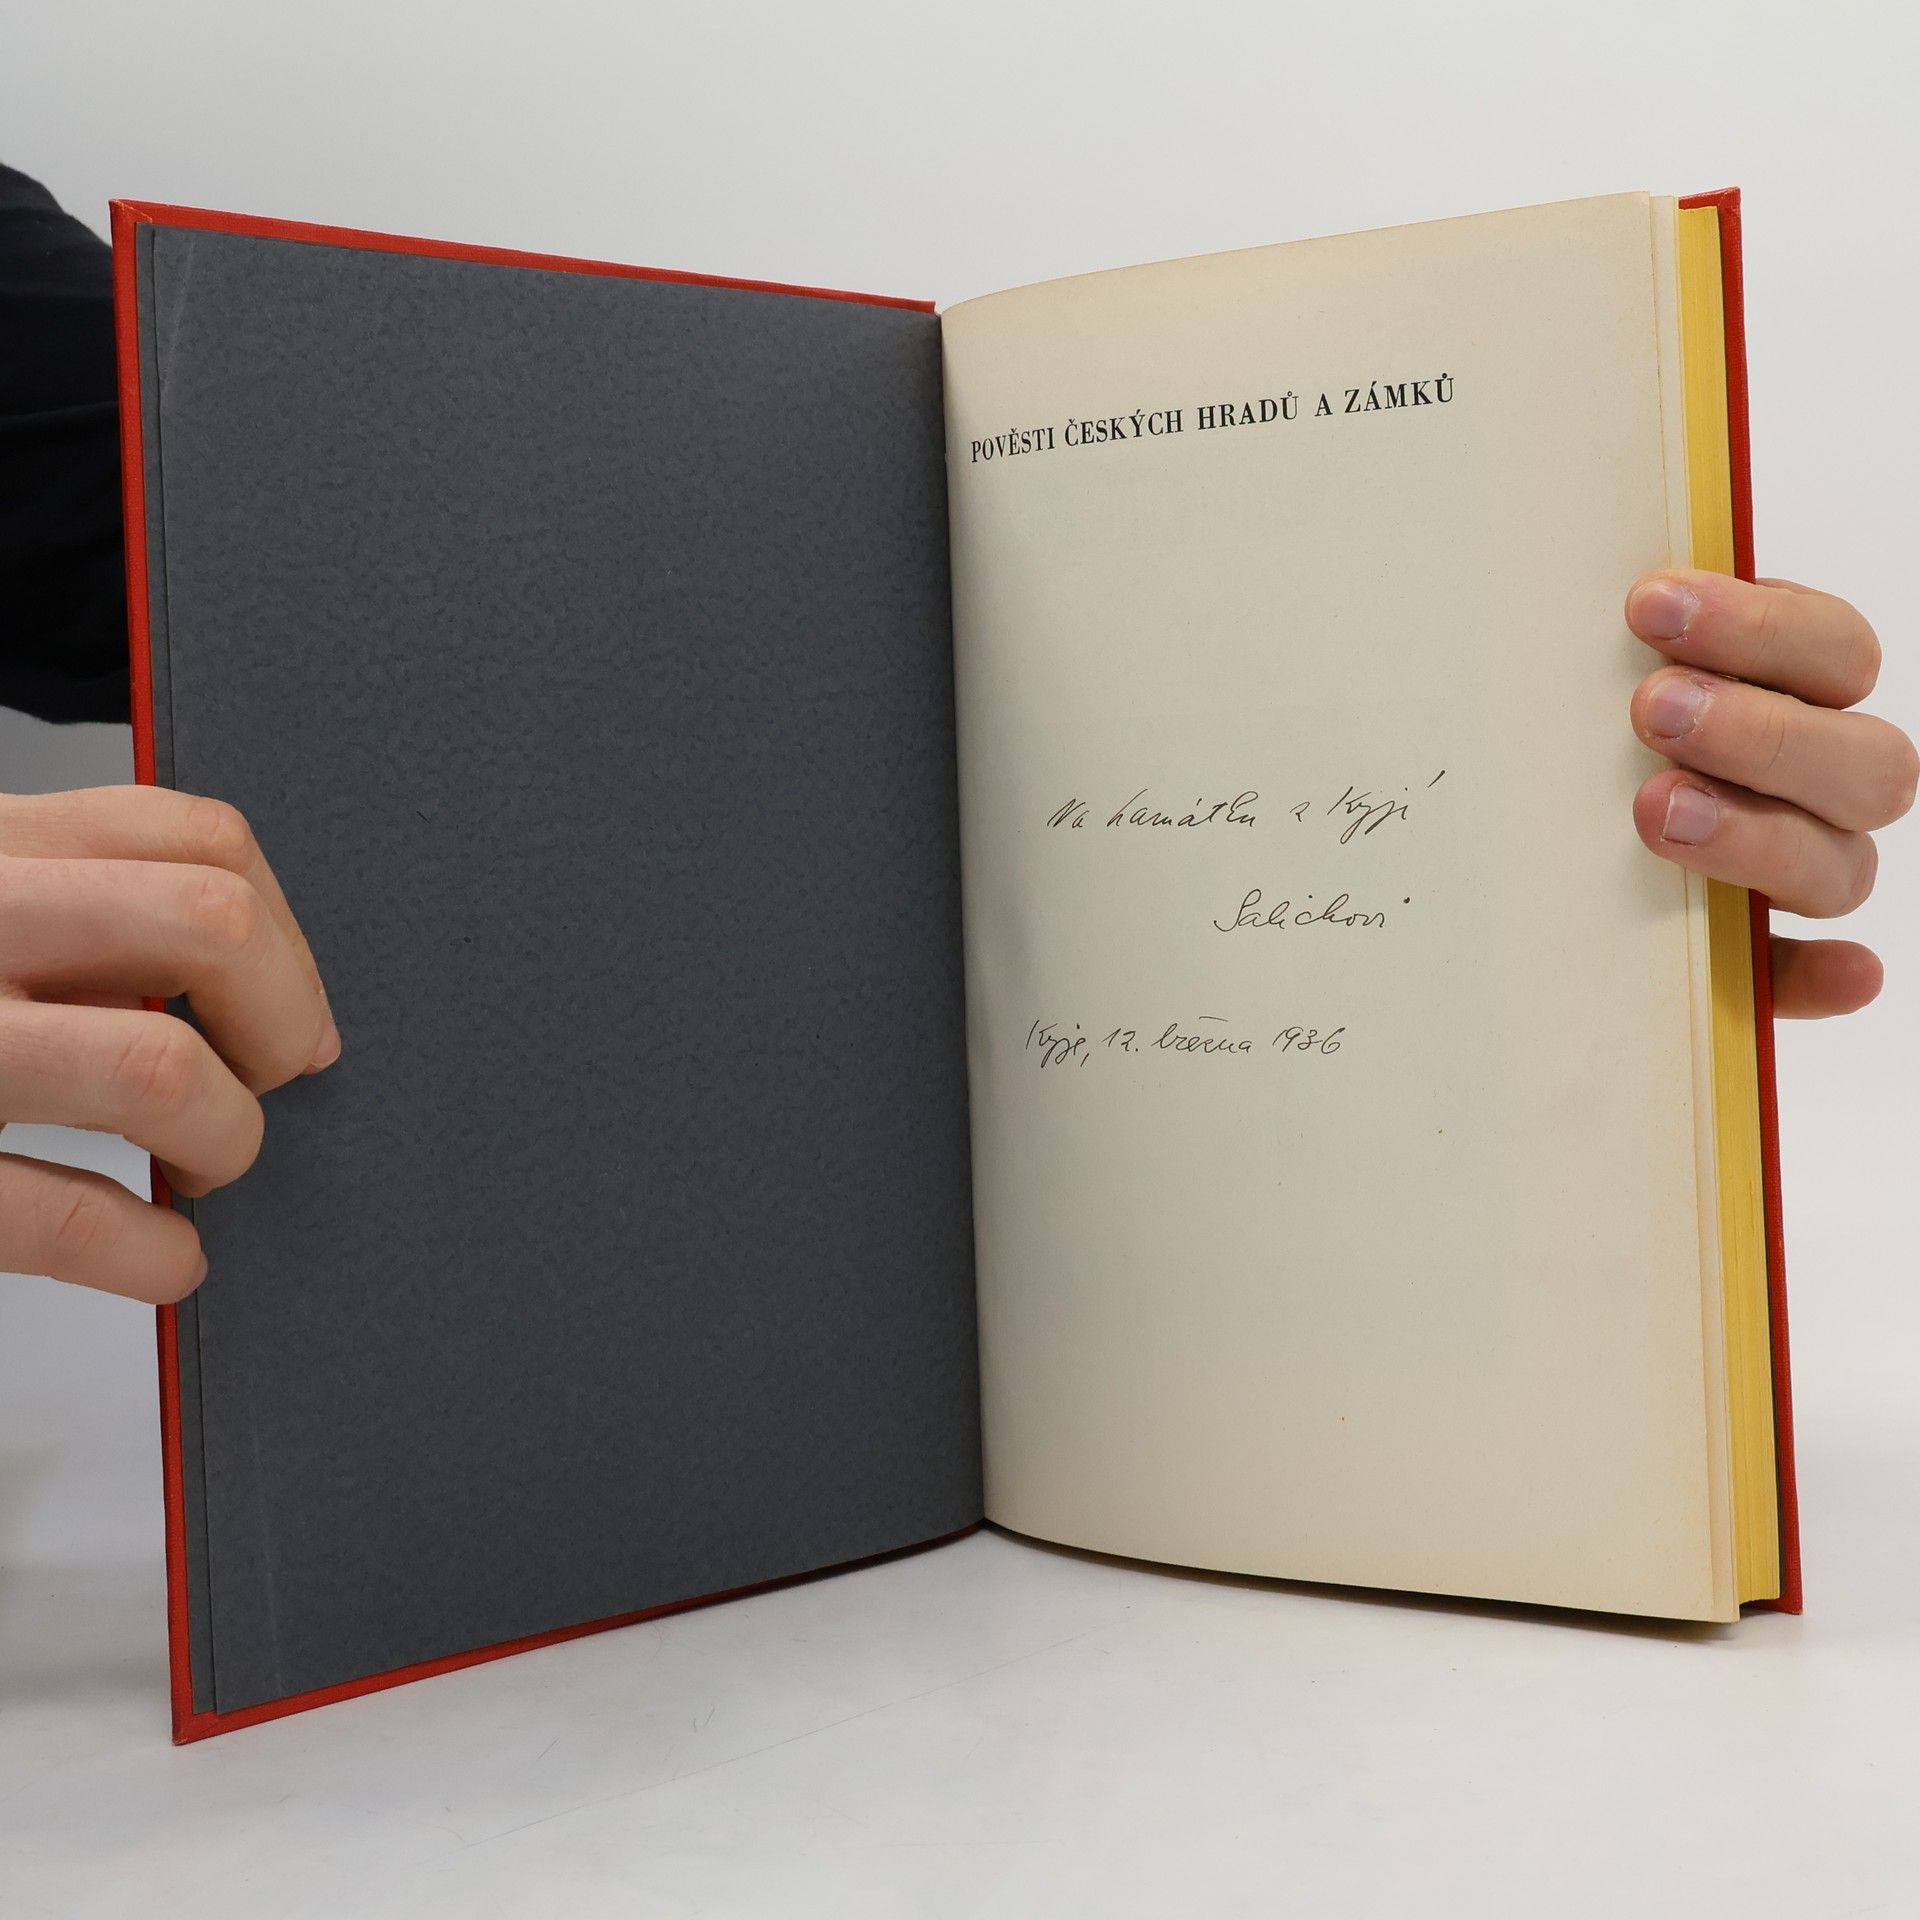 POVĚSTI ČESKÝCH HRADŮ A ZÁMKŮ
Na památku z Kyjí
Salichovi
Kyje, 12. března 1936